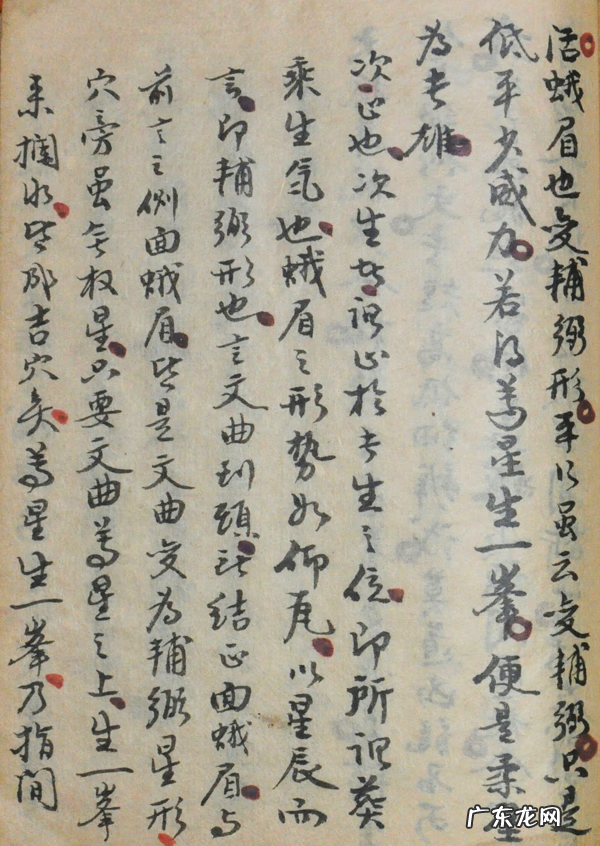 活蛾眉也变輔弼形平以虽云变輔弼只是
低平少威力若得善星生一峯便是柔星
為专雄
次正也次生者謂正於专生之位即所謂葵
乘生氣也蛾眉之形势如仰瓦以星辰而
言即輔弼形也言文曲到頭结正面蛾眉与
前言之侧面蛾眉皆是文曲变為輔弼星形
穴旁虽权星只要文曲星之上生一峯
来拦水皆成吉穴矣星生一峯乃指間
广东龙网